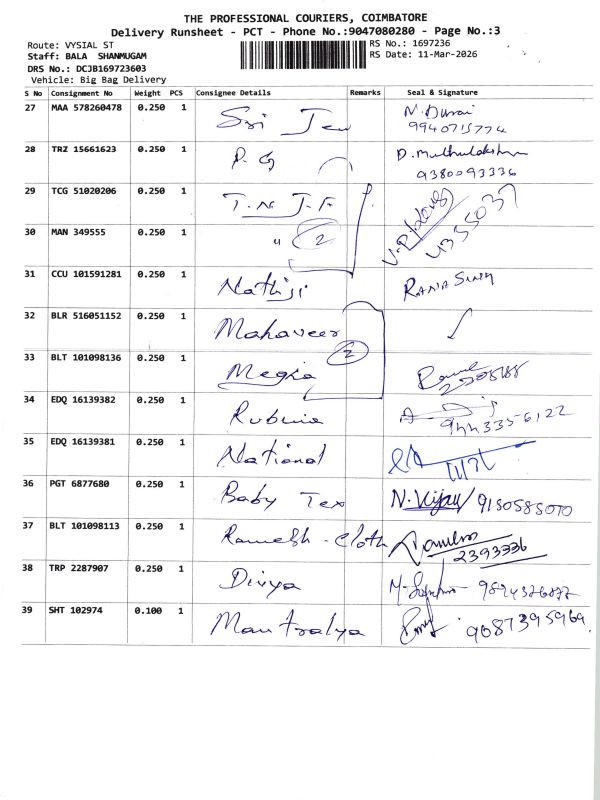 THE PROFESSIONAL COURIERS, COIMBATORE
Delivery Runsheet - PCT - Phone No.:9047080280 - Page No.:3
Route: VYSIAL ST
Staff: BALA SHANMUGAM
DRS No.: DCJB169723603
Vehicle: Big Bag Delivery
RS No.: 1697236
RS Date: 11-Mar-2026
S No Consignment No Weight PCS Consignee Details Remarks Seal & Signature
27 MAA 578260478 0.250 1 Sri Jew N. Durai
9940715774
28 TRZ 15661623 0.250 1 P. G D. Muthulakshm
9380093336
29 TCG 51020206 0.250 1 T. N. J. F.
30 MAN 349555 0.250 1 " 2 4355037
31 CCU 101591281 0.250 1 Nathiji RANA SINGH
32 BLR 516051152 0.250 1 Mahaveer
33 BLT 101098136 0.250 1 Megha 2
34 EDQ 16139382 0.250 1 Rubinia 9443356122
35 EDQ 16139381 0.250 1 National
36 PGT 6877680 0.250 1 Baby Tex N. Vijay 9150585070
37 BLT 101098113 0.250 1 Ramesh - Cloth
2393336
38 TRP 2287907 0.250 1 Divya
39 SHT 102974 0.100 1 9087395969